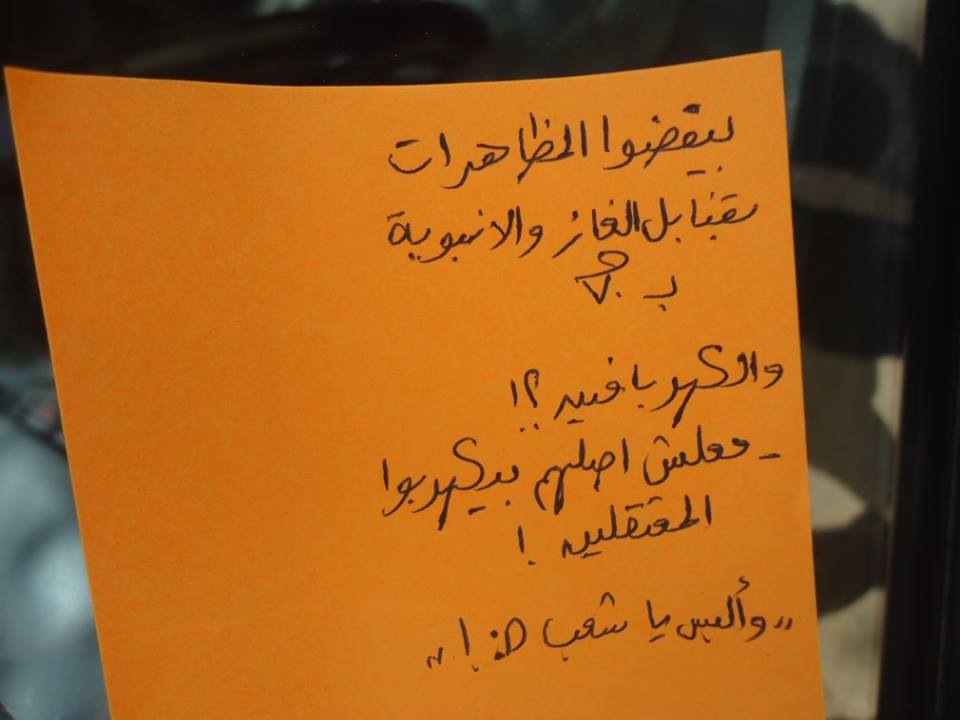 بيفضوا المظاهرات
بقنابل الغاز والانبوبة
ب
والكهربا فين ؟!
- معلش اصلهم بيكهربوا
المعتقلين !
"وألبس يا شعب هنا"